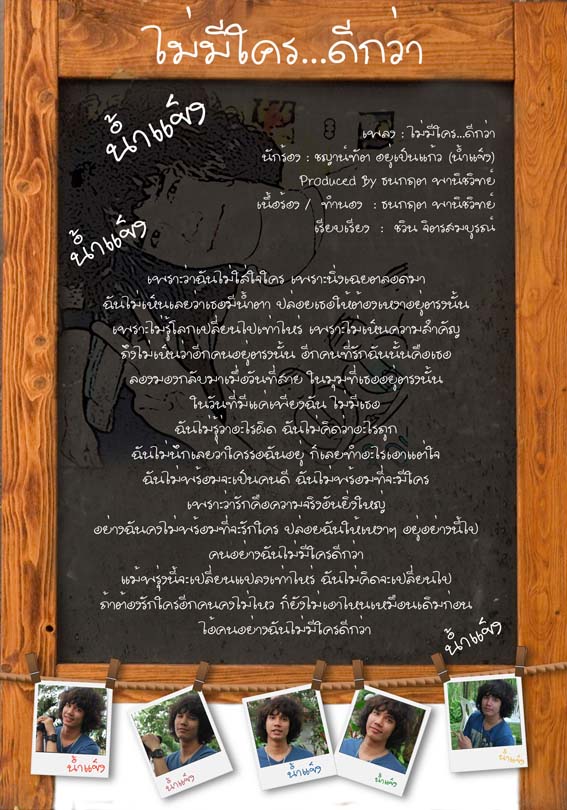 ไม่มีใคร...ดีกว่า
น้ำแข็ง
เพลง : ไม่มีใคร...ดีกว่า
นักร้อง : ชญาน์ทัต อยู่เป็นแก้ว (น้ำแข็ง)
Produced By ธนกฤต พานิชวิทย์
เนื้อร้อง / ทำนอง : ธนกฤต พานิชวิทย์
เรียบเรียง : ชวิน จิตรสมบูรณ์
น้ำแข็ง
เพราะว่าฉันไม่ใส่ใจใคร เพราะนิ่งเฉยตลอดมา
ฉันไม่เห็นเลยว่าเธอมีน้ำตา ปล่อยเธอให้ต้องเหงาอยู่ตรงนั้น
เพราะไม่รู้โลกเปลี่ยนไปเท่าไหร่ เพราะไม่เห็นความสำคัญ
ถึงไม่เห็นว่าอีกคนอยู่ตรงนั้น อีกคนที่รักฉันนั้นคือเธอ
ลองมองกลับมาเมื่อวันที่สาย ในมุมที่เธออยู่ตรงนั้น
ในวันที่มีแค่เพียงฉัน ไม่มีเธอ
ฉันไม่รู้ว่าอะไรผิด ฉันไม่คิดว่าอะไรถูก
ฉันไม่นึกเลยว่าใครรอฉันอยู่ ก็เลยทำอะไรเอาแต่ใจ
ฉันไม่พร้อมจะเป็นคนดี ฉันไม่พร้อมที่จะมีใคร
เพราะว่ารักคือความจริงอันยิ่งใหญ่
อย่างฉันคงไม่พร้อมที่จะรักใคร ปล่อยฉันให้เหงาๆ อยู่อย่างนี้ไป
คนอย่างฉันไม่มีใครดีกว่า
แม้พรุ่งนี้จะเปลี่ยนแปลงเท่าไหร่ ฉันไม่คิดจะเปลี่ยนไป
ถ้าต้องรักใครอีกคนคงไม่ไหว ก็ยังไม่เอาไหนเหมือนเดิมก่อน
ไอ้คนอย่างฉันไม่มีใครดีกว่า
น้ำแข็ง
น้ำแข็ง
น้ำแข็ง
น้ำแข็ง
น้ำแข็ง
น้ำแข็ง